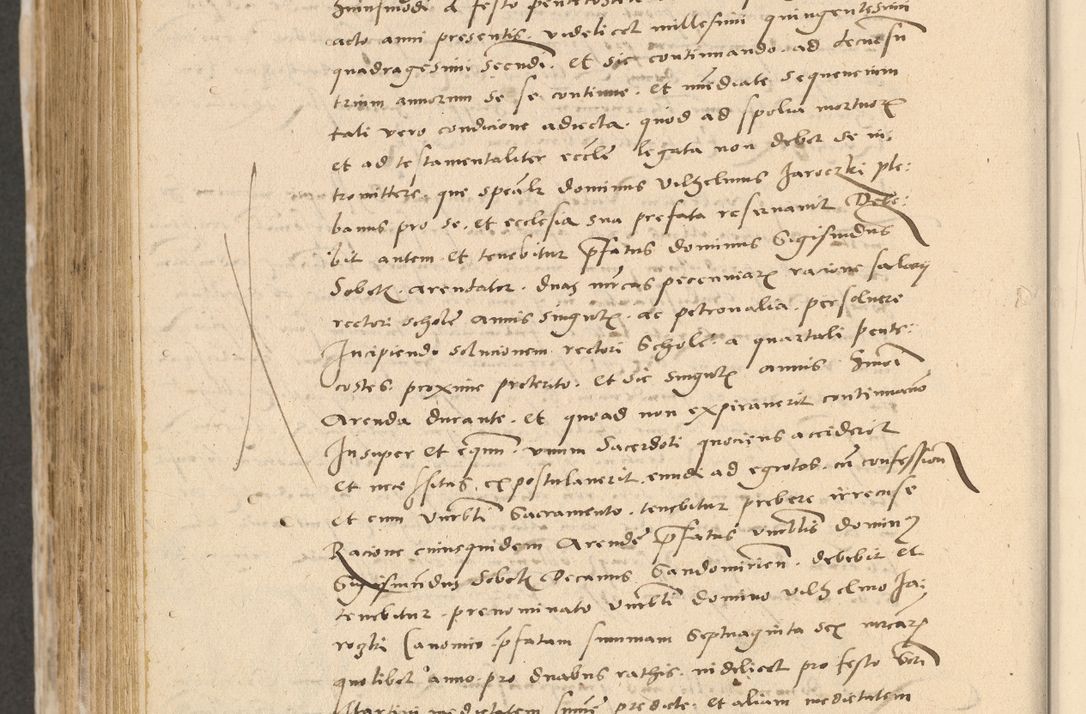 huiusmodi a festo pentecostes
acto anni presentis. videlicet millesimi quingentesimi
quadragesimi secundi. Et sic continuando ad decursu
trium annorum de se continue. Et immediate sequencium
tali vero condicione adiecta. quod ad spolia mortuor
et ad testamentaliter eccle legata non debet se in:
tromittere. que specialr dominus Vilhelmus Jaroczki ple:
banus pro se. et ecclesia sua prefata reservavit Debe:
bit autem et tenebitur pfatus dominus Sigismundus
Sobek. arendator. duas mrcas pecuniar racione salarij
rectori schole annis singulis. ac petronalia. persolvere
Incipiendo solucionem rectori Schole. a quartali pente:
costes. proxime preterito. et sic singulis annis. hmoi
Arenda durante. Et quoad non expiraverit continuacio
Insuper et equum. unum Sacerdoti quociens acciderit
et necessitas. expostulaverit. eundi ad egrotos. cu confession
et cum Venerbli Sacramento. tenebitur prebere irrecuse
Racione cuiusquidem Arende pfatus venerblis domin9
Sigismundus Sobek Decanus Sandomirien. debebit et
tenebitur. prenominato Venerbli domino Vilhelmo Ja:
roczki Canonico. pfatam summam Septuaginta sex mrcar
quolibet anno. pro duabus rathis. videlicet pro festo scti
Martini medietatem summe predicte. et aliam medietatem